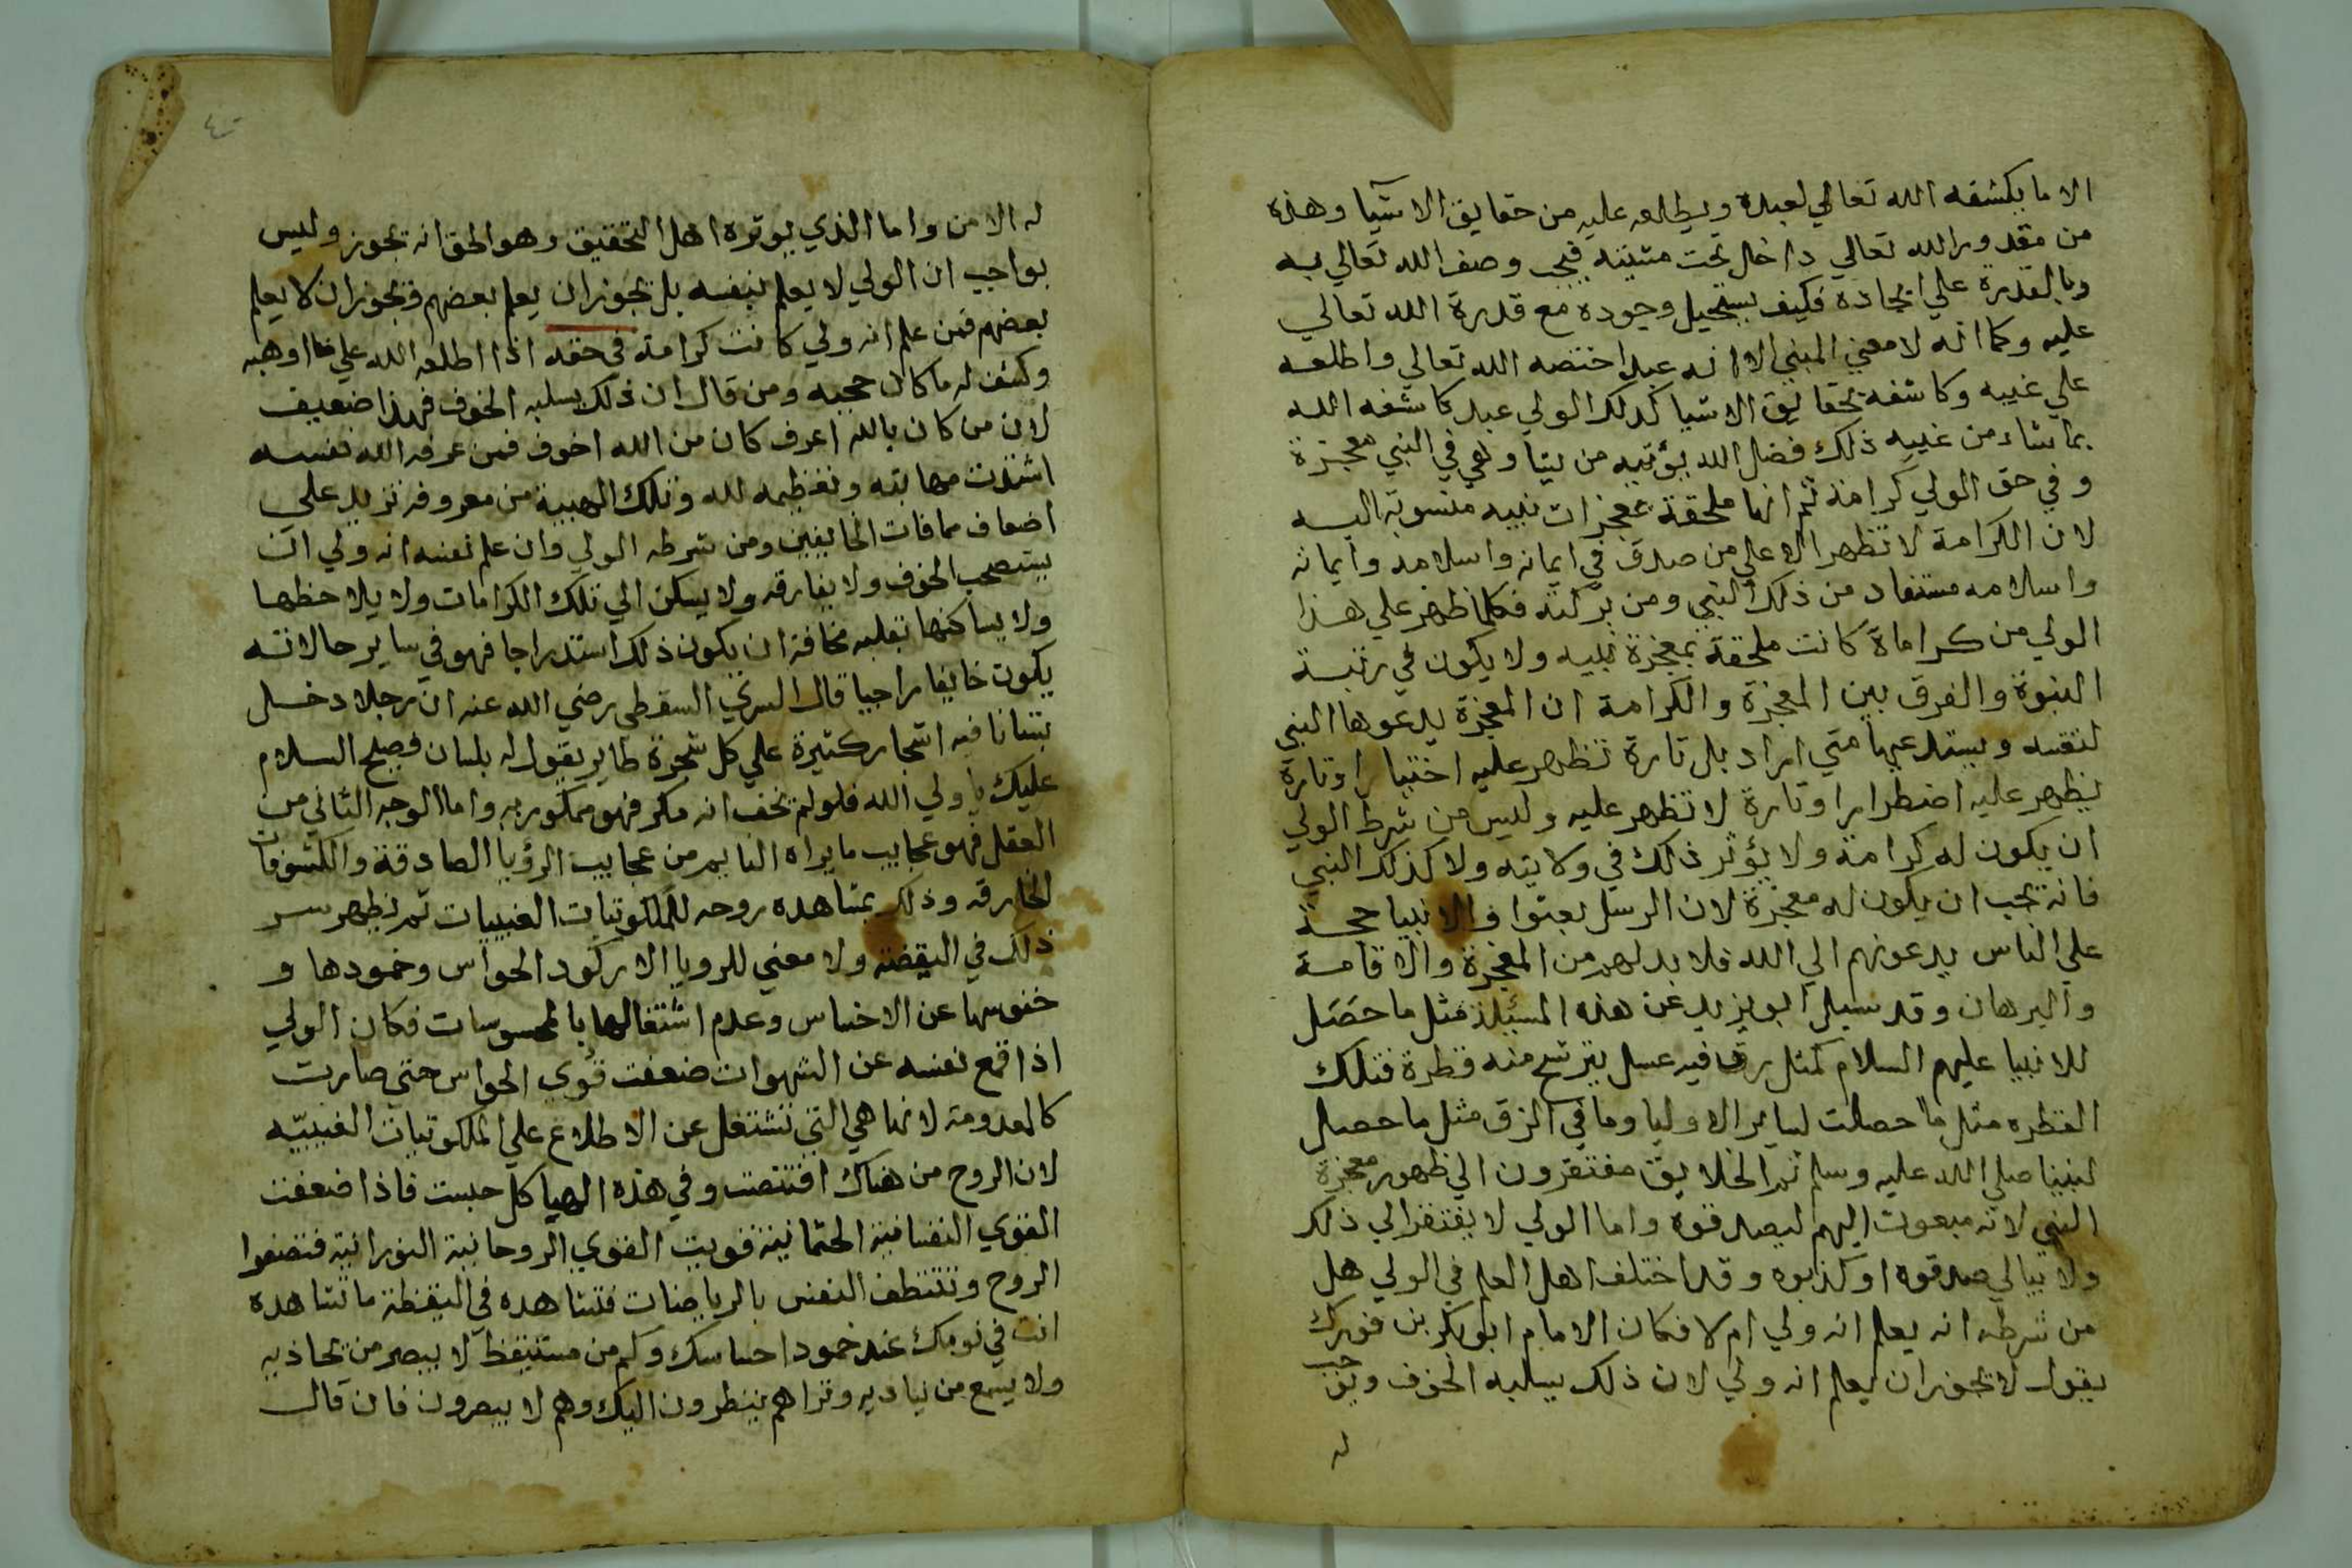 الا ما يكشفه الله تعالي لعبده ويطلعه عليه من حقايق الاشيا وهذه
من مقدور الله تعالي داخل تحت مشيته فيجب وصف الله تعالي به
وبالقدرة علي ايجاده فكيف يستحيل وجوده مع قدرة الله تعالي
عليه وكما انه لا معني للنبي الا انه عبد اختصه الله تعالي واطلعه
علي غيبه وكاشفه بحقايق الاشيا كذلك الولي عبد كاشفه الله
بما شاء من غيبه ذلك فضل الله يؤتيه من يشا وهي في النبي معجزة
وفي حق الولي كرامة ثم انها ملحقة بمعجزات نبيه منسوبة اليه
لان الكرامة لا تظهر الا علي من صدق في ايمانه واسلامه وايمانه
واسلامه مستفاد من ذلك النبي ومن بركته فكلما ظهر علي هذا
الولي من كراماة كانت ملحقة بمعجزة نبيه ولا يكون في رتبة
النبوة والفرق بين المعجزة والكرامة ان المعجزة يدعوها النبي
لنفسه ويستدعيها متي اراد بل تارة تظهر عليه اختيارا وتارة
يظهر عليه اضطرارا وتارة لا تظهر عليه وليس من شرط الولي
ان يكون له كرامة ولا يؤثر ذلك في ولايته ولا كذلك النبي
فانه يجب ان يكون له معجزة لان الرسل بعثوا والانبيا حجة
علي الناس يدعونهم الي الله فلا بد لهم من المعجزة والاقامة
والبرهان وقد سيل ابو يزيد عن هذه المسئلة مثل ما حصل
للانبيا عليهم السلام كمثل زق فيه عسل يترشح منه قطرة فتلك
القطره مثل ما حصلت لساير الاوليا وما في الزق مثل ما حصل
لنبينا صلي الله عليه وسلم ثم الخلايق مفتقرون الي ظهور معجزة
النبي لانه مبعوث اليهم ليصدقوه واما الولي لا يفتقر الي ذلك
ولا يبالي صدقوه او كذبوه وقد اختلف اهل العلم في الولي هل
من شرطه انه يعلم انه ولي ام لا فكان الامام ابو بكر بن فورك
يقول لا يجوز ان يعلم انه ولي لان ذلك يسلبه الخوف ويوجب
له
له الامن واما الذي يوثره اهل التحقيق وهو الحق انه يجوز وليس
بواجب ان الولي لا يعلم بنفسه بل يجوز ان يعلم بعضهم ويجوز ان لا يعلم
بعضهم فمن علم انه ولي كانت كرامة في حقه اذا اطلعه الله علي ما اوهبه
وكشف له ما كان حجبه ومن قال ان ذلك يسلبه الخوف فهذا ضعيف
لان من كان بالله اعرف كان من الله اخوف فمن عرفه الله نفسه
اشتدت مهابته وتعظيمه لله وتلك الهيبة من معروفه تزيد علي
اضعاف مخافات الخايفين ومن شرطه الولي وان علم نفسه انه ولي ان
يستصحب الخوف ولا يفارقه ولا يسكن الي تلك الكرامات ولا يلاحظها
ولا يساكنها بقلبه مخافة ان يكون ذلك استدراجا فهو في ساير حالاته
يكون خايفا راجيا قال السري السقطي رضي الله عنه ان رجلا دخل
بستانا فيه اشجار كثيرة علي كل شجرة طاير يقول له بلسان فصيح السلام
عليك يا ولي الله فلو لم يخف انه مكر فهو ممكور به واما الوجه الثاني من
العقل فهو عجايب ما يراه النايم من عجايب الرؤيا الصادقة والكشوفات
الخارقه وذلك بمشاهده روحه للملكوتيات الغيبيات ثم يظهر سر
ذلك في اليقضه ولا معني للرويا الا ركود الحواس وخمودها و
خنوسها عن الاحساس وعدم اشتغالها بالمحسوسات فكان الولي
اذا قمع نفسه عن الشهوات ضعفت قوي الحواس حتي صارت
كالمعدومة لانها هي التي تشتغل عن الاطلاع علي الملكوتيات الغيبيّه
لان الروح من هناك اقتنصت وفي هذه الهياكل حبست فاذا ضعفت
القوي النفسانية الجثمانية قويت القوي الروحانية النورانية فتصفوا
الروح وتتنظف النفس بالرياضات فتشاهده في اليقظة ما تشاهده
انت في نومك عند خمود احساسك وكم من مستيقظ لا يبصر من يحاذيه
ولا يسمع من يناديه وتراهم ينظرون اليك وهم لا يبصرون فان قال